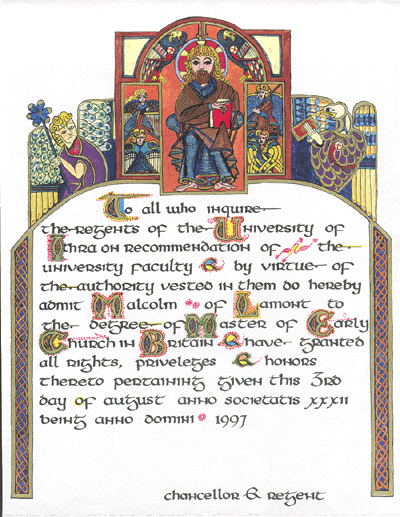 To all who inquire
the regents of the University of
Ithra on recommendation of the
university faculty & by virtue of
the authority vested in them do hereby
admit Malcolm of Lamont to
the degree of Master of Early
Church in Britain & have granted
all rights, priveleges & honors
thereto pertaining given this 3rd
day of august anno societatis xxxii
being anno domini 1997
chancellor & Regent